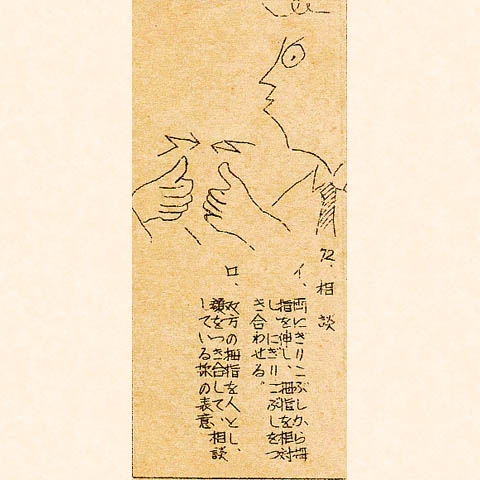 72、相談
イ、両にぎりこぶしから拇
指を伸し、拇指を相対
し にぎりこぶしをつ
き合わせる。
ロ、双方の拇指を人とし、
額をつき合して、相談
している様の表意